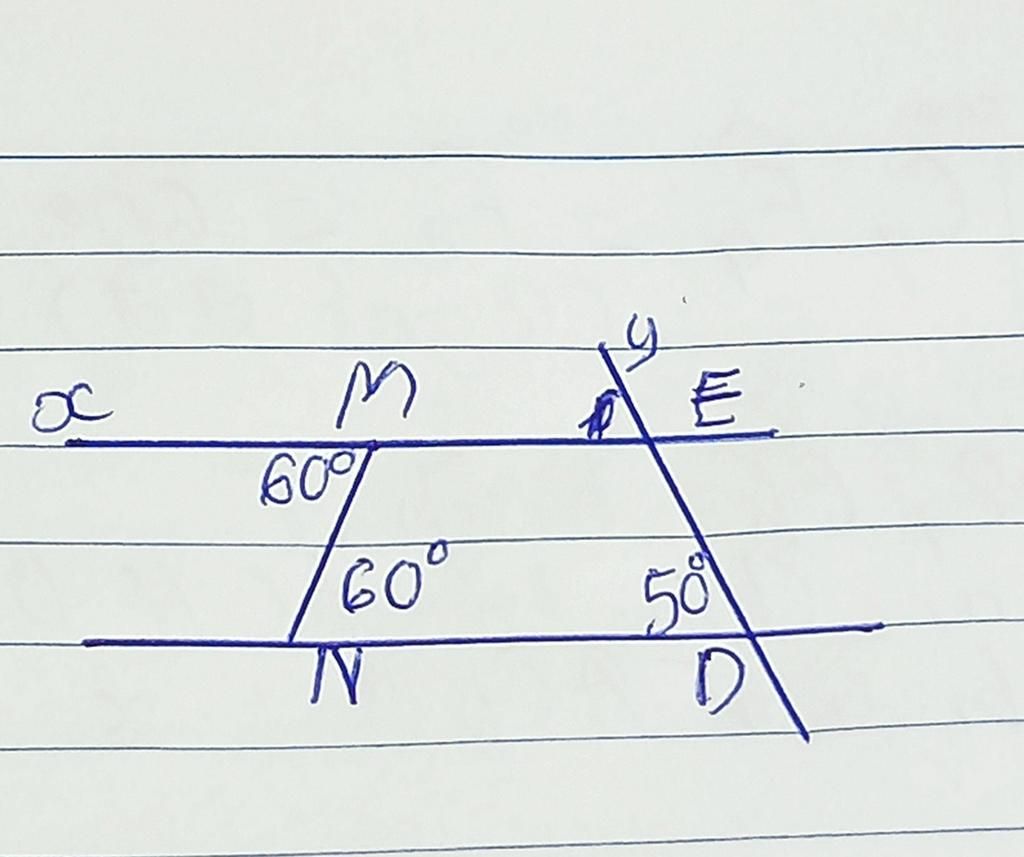 y
x M E
60°
60° 50°
N D